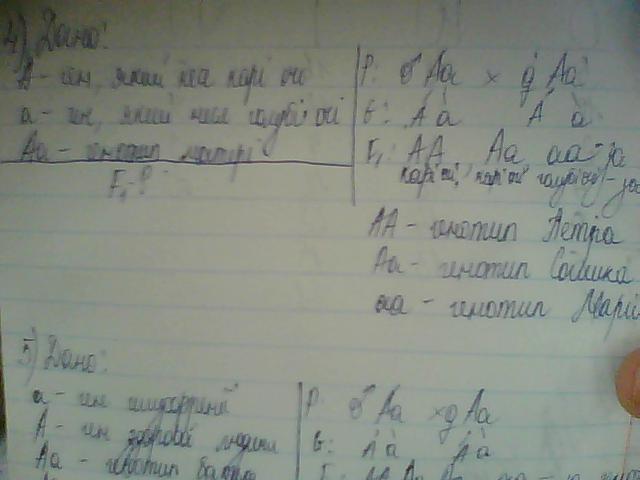 4) Дано:
А - ген, який несе карі очі
а - ген, який несе голубі очі
Аа - генотип матері
F₁ - ?
P: ♂ Aa × ♀ Aa
G: A a A a
F₁: AA, Aa, aa
карі очі, карі очі, голубі очі
АА - генотип Петра
Аа - генотип
аа - генотип Марії
5) Дано:
а - ген шизофренії
А - ген здорової людини
Аа - генотип батька
P: ♂ Aa × ♀ Aa
G: A a A a